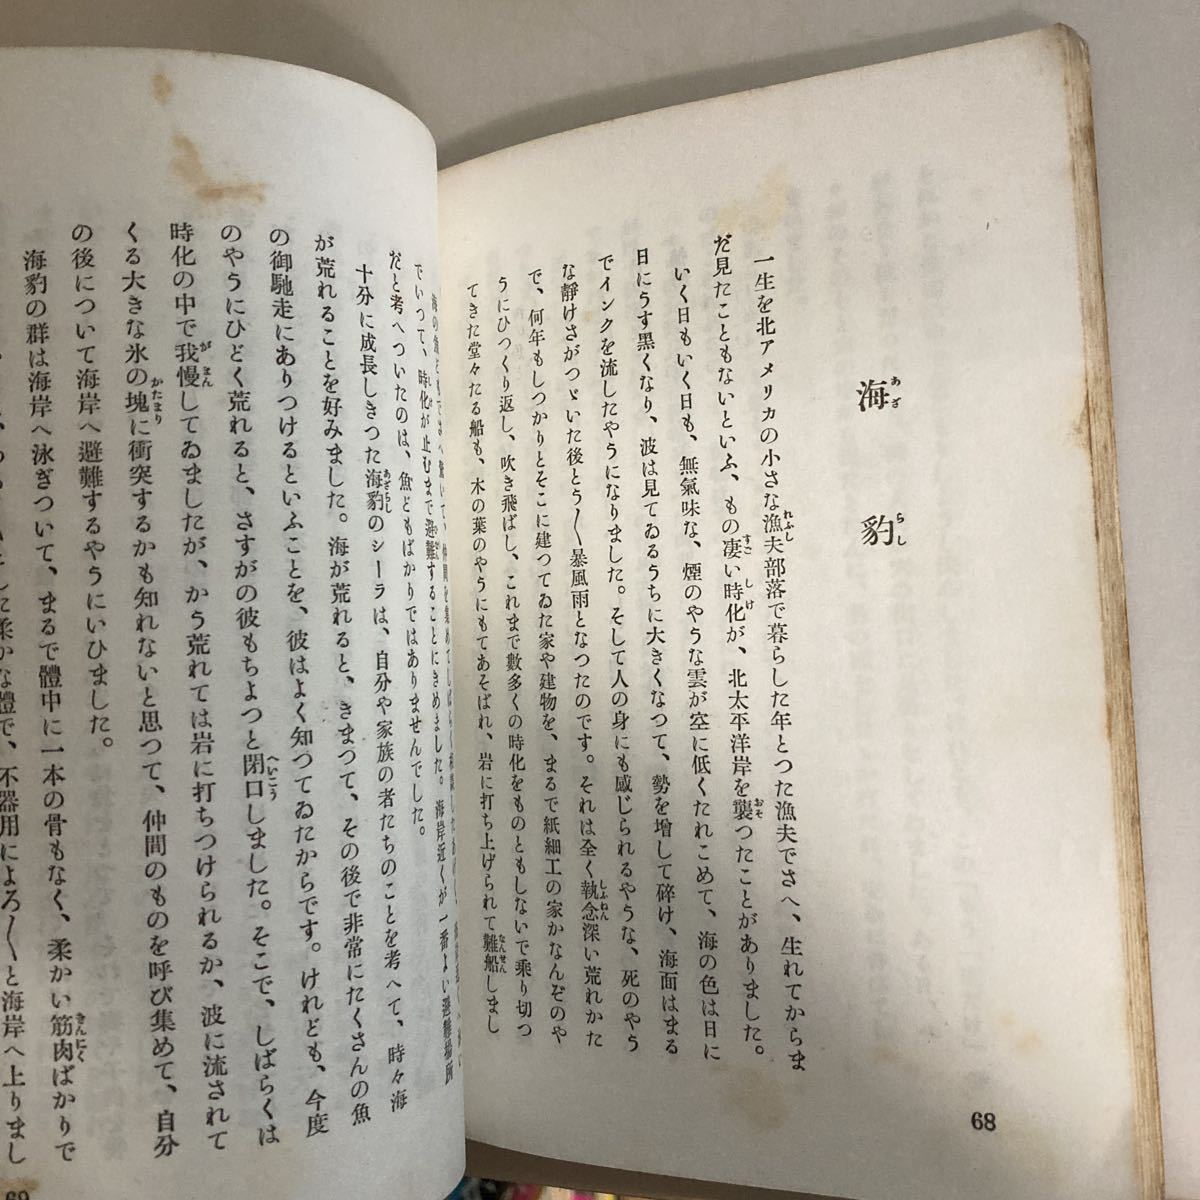 海豹
あざらし
一生を北アメリカの小さな漁夫部落で暮らした年とつた漁夫でさへ、生れてからま
れふし
だ見たこともないといふ、もの凄い時化が、北太平洋岸を襲つたことがありました。
すご しけ おそ
いく日もいく日も、無氣味な、煙のやうな雲が空に低くたれこめて、海の色は日に
日にうす黒くなり、波は見てゐるうちに大きくなつて、勢を增して碎け、海面はまる
でインクを流したやうになりました。そして人の身にも感じられるやうな、死のやう
な靜けさがつゞいた後とう〳〵暴風雨となつたのです。それは全く執念深い荒れかた
しふねん
で、何年もしつかりとそこに建つてゐた家や建物を、まるで紙細工の家かなんぞのや
うにひつくり返し、吹き飛ばし、これまで數多くの時化をものともしないで乘り切つ
てきた堂々たる船も、木の葉のやうにもてあそばれ、岩に打ち上げられて難船しまし
なんせん
68
でいつて、時化が止むまで避難することにきめました。海岸近くが一番よい避難場所
だと考へついたのは、魚どもばかりではありませんでした。
十分に成長しきつた海豹のシーラは、自分や家族の者たちのことを考へて、時々海
あざらし
が荒れることを好みました。海が荒れると、きまつて、その後で非常にたくさんの魚
の御馳走にありつけるといふことを、彼はよく知つてゐたからです。けれども、今度
のやうにひどく荒れると、さすがの彼もちよつと閉口しました。そこで、しばらくは
へいこう
時化の中で我慢してゐましたが、かう荒れては岩に打ちつけられるか、波に流されて
がまん
くる大きな氷の塊に衝突するかも知れないと思つて、仲間のものを呼び集めて、自分
かたまり
の後について海岸へ避難するやうにいひました。
海豹の群は海岸へ泳ぎついて、まるで體中に一本の骨もなく、柔かい筋肉ばかりで
きんにく
した柔かな體で、不器用によろ〳〵と海岸へ上りまし
69